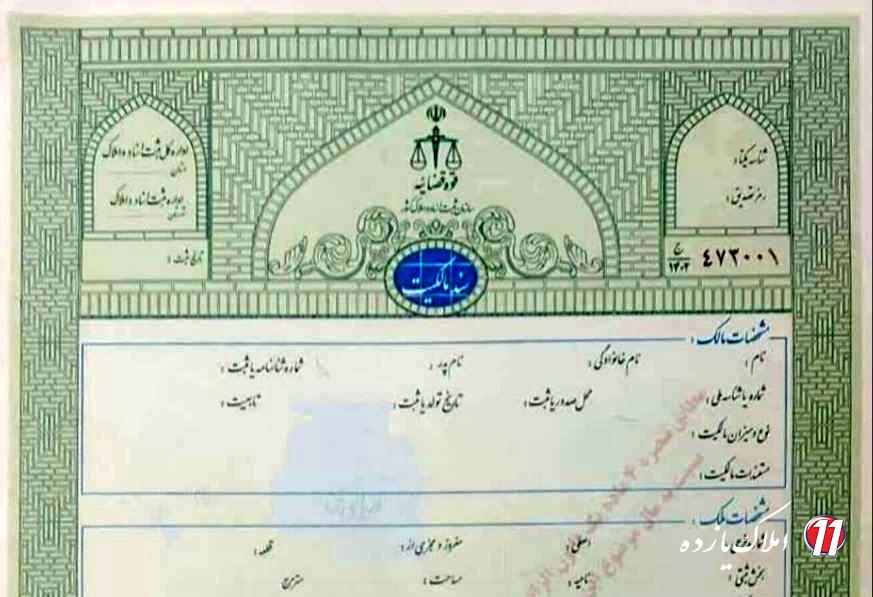 اداره کل ثبت اسناد و املاک
استان
اداره ثبت اسناد و املاک
شهرستان
تاریخ ثبت :
قوه قضائیه
سازمان ثبت اسناد و املاک کشور
سند مالکیت
شناسه یکتا :
رمز تصدیق :
۴۷۳۰۰۱
ج
۱۴۰۲
مشخصات مالک :
نام : نام خانوادگی : نام پدر : شماره شناسنامه یا ثبت :
شماره یا شناسه ملی : محل صدور یا ثبت : تاریخ تولد یا ثبت : تابعیت :
نوع و میزان مالکیت :
مستندات مالکیت :
مشخصات ملک :
اصلی : مفروز و مجزی از : قطعه :
بخش ثبتی : ناحیه : مساحت : مترمربع
املاک یازده 11